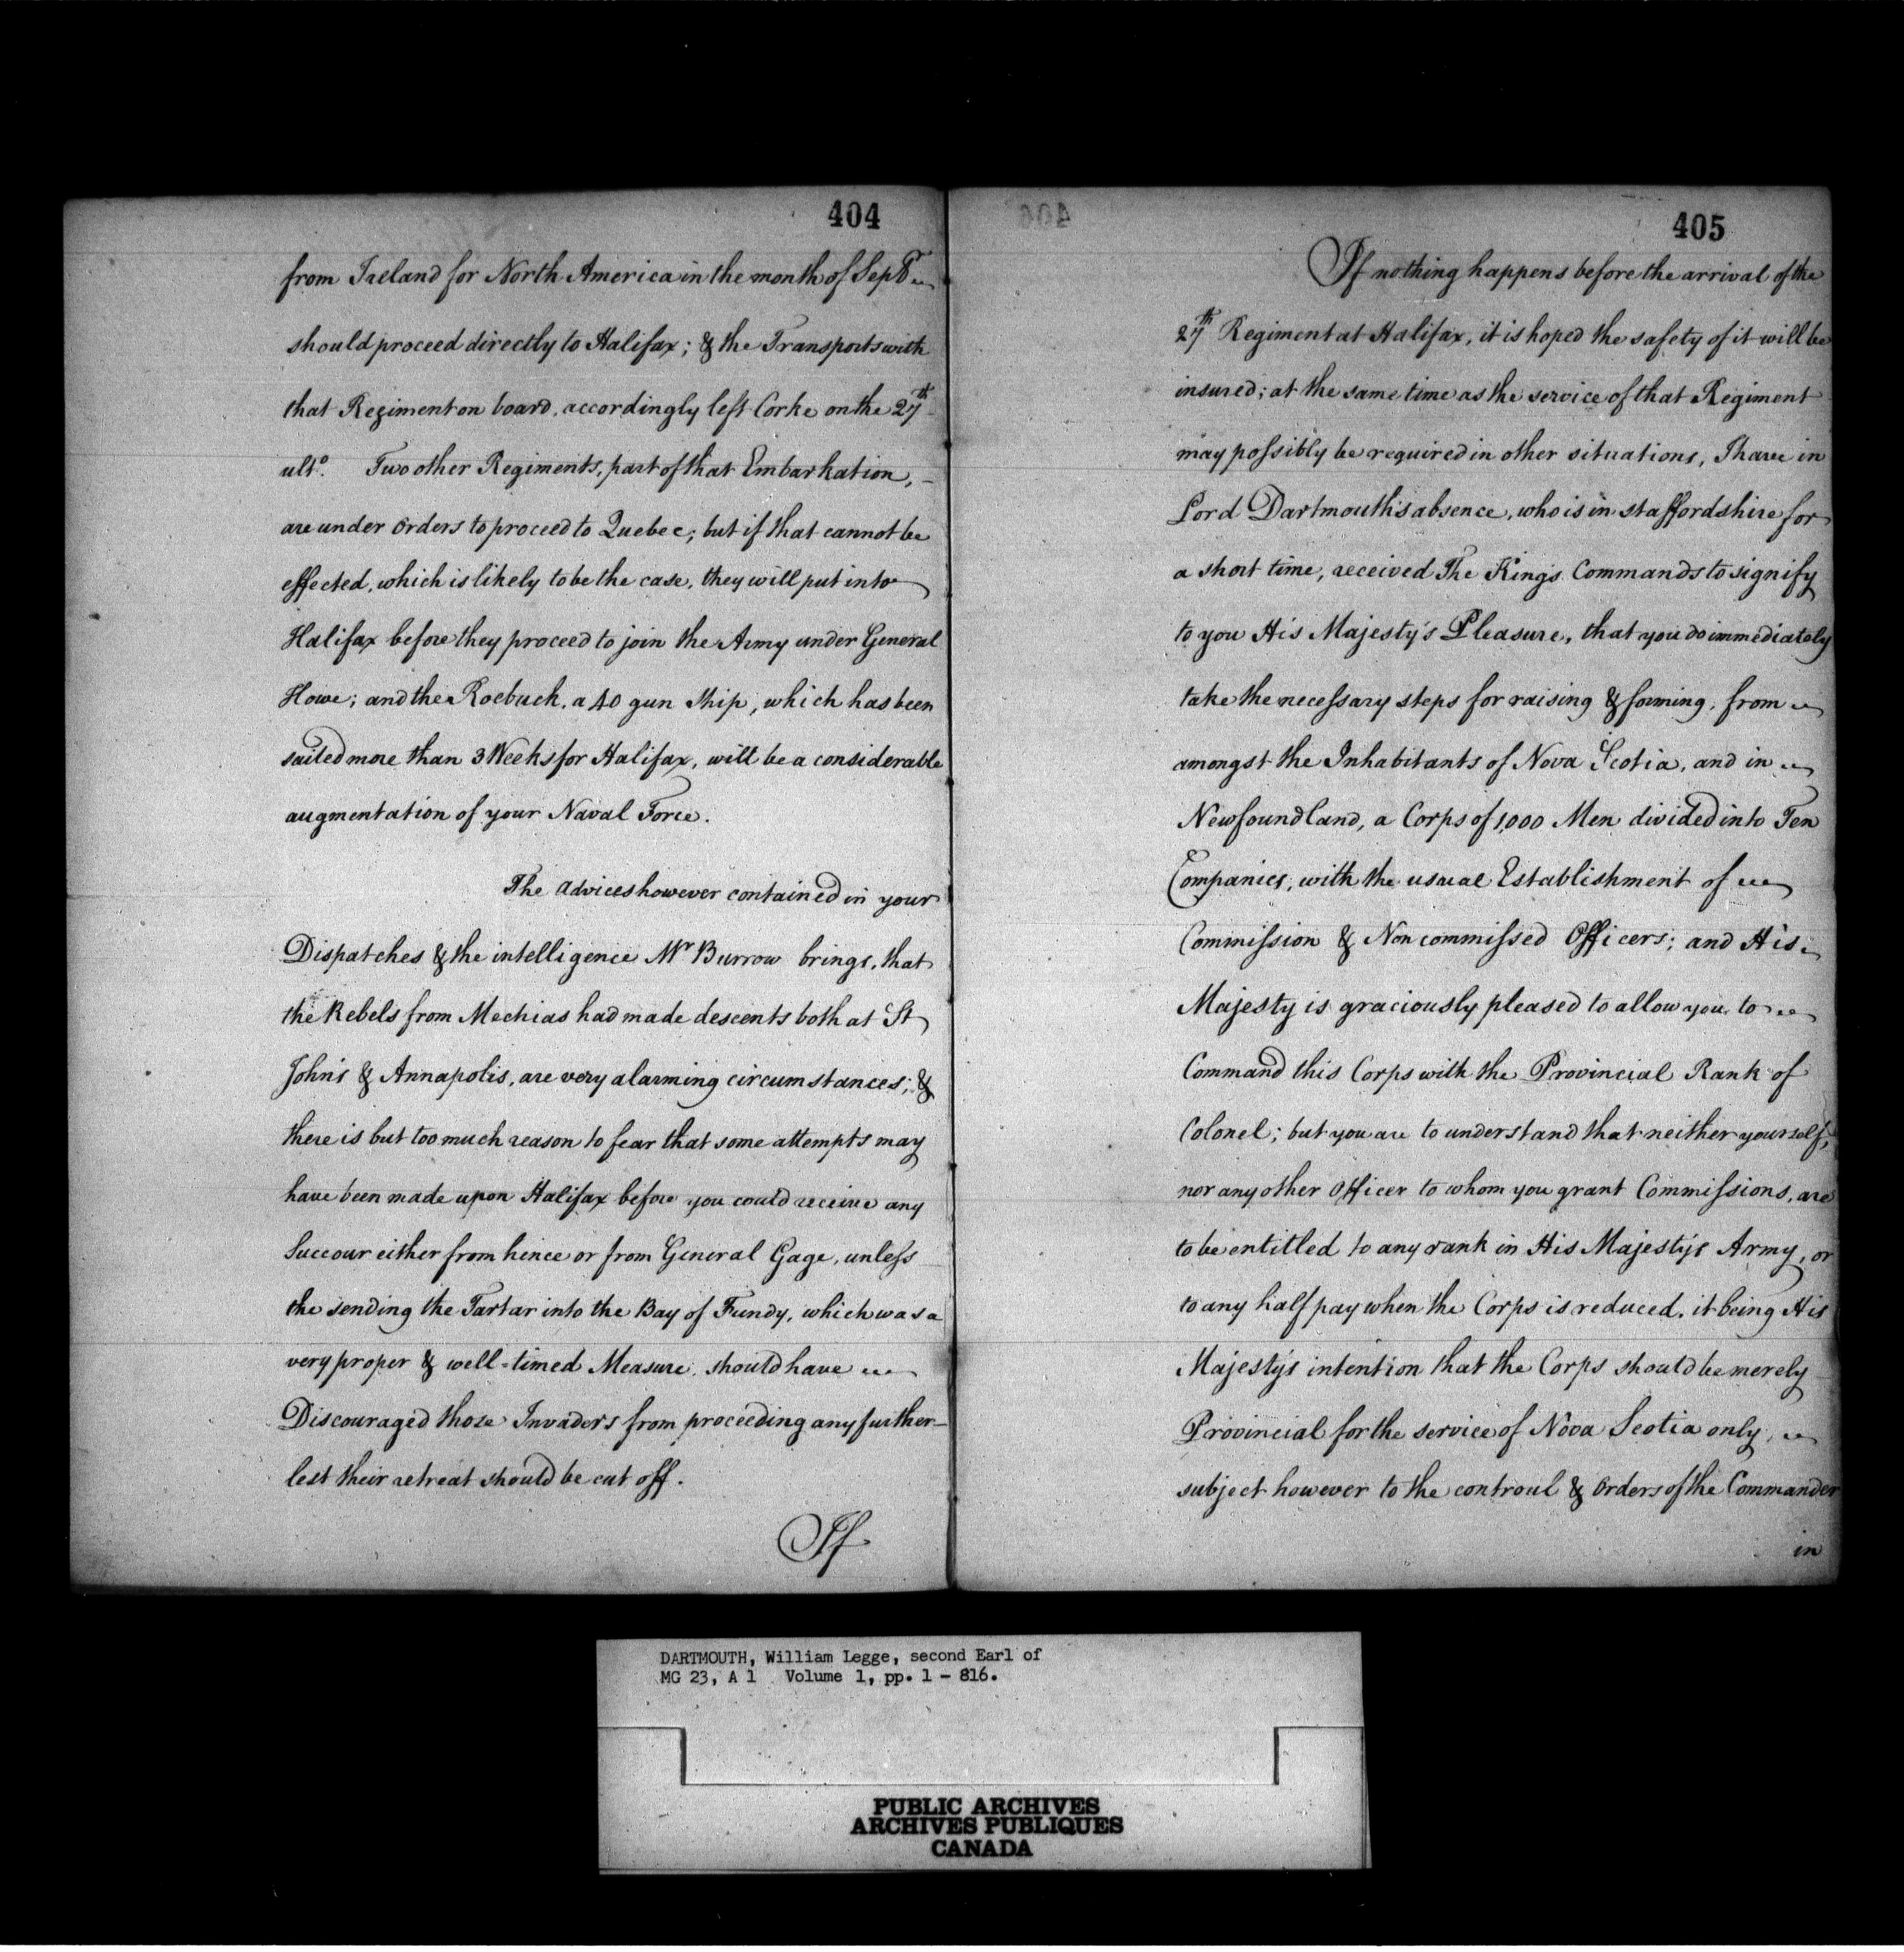 404
from Ireland for North America in the month of Sepr
should proceed directly to Halifax; & the Transports with
that Regiment on board, accordingly left Corke on the 27th
ulto. Two other Regiments, part of that Embarkation,
are under orders to proceed to Quebec; but if that cannot be
effected, which is likely to be the case, they will put into
Halifax before they proceed to join the Army under General
Howe; and the Roebuck, a 40 gun Ship, which has been
sailed more than 3 Weeks for Halifax, will be a considerable
augmentation of your Naval Force.
The advices however contained in your
Dispatches & the intelligence Mr Burrow brings, that
the Rebels from Mechias had made descents both at St
John's & Annapolis, are very alarming circumstances; &
there is but too much reason to fear that some attempts may
have been made upon Halifax before you could receive any
Succour either from hence or from General Gage, unless
the sending the Tartar into the Bay of Fundy, which was a
very proper & well-timed Measure, should have
Discouraged those Invaders from proceeding any further
lest their retreat should be cut off.
If
405
If nothing happens before the arrival of the
27th Regiment at Halifax, it is hoped the safety of it will be
insured; at the same time as the service of that Regiment
may possibly be required in other situations, I have in
Lord Dartmouth's absence, who is in Staffordshire for
a short time, received The King's Commands to signify
to you His Majesty's Pleasure, that you do immediately
take the necessary steps for raising & forming, from
amongst the Inhabitants of Nova Scotia, and in
Newfoundland, a Corps of 1,000 Men divided into Ten
Companies, with the usual Establishment of
Commission & Non commissed Officers; and His
Majesty is graciously pleased to allow you to
Command this Corps with the Provincial Rank of
Colonel; but you are to understand that neither yourself,
nor any other Officer to whom you grant Commissions, are
to be entitled to any rank in His Majesty's Army, or
to any half pay when the Corps is reduced, it being His
Majesty's intention that the Corps should be merely
Provincial for the service of Nova Scotia only,
subject however to the controul & Orders of the Commander
in
DARTMOUTH, William Legge, second Earl of
MG 23, A 1 Volume 1, pp. 1 - 816.
PUBLIC ARCHIVES
ARCHIVES PUBLIQUES
CANADA